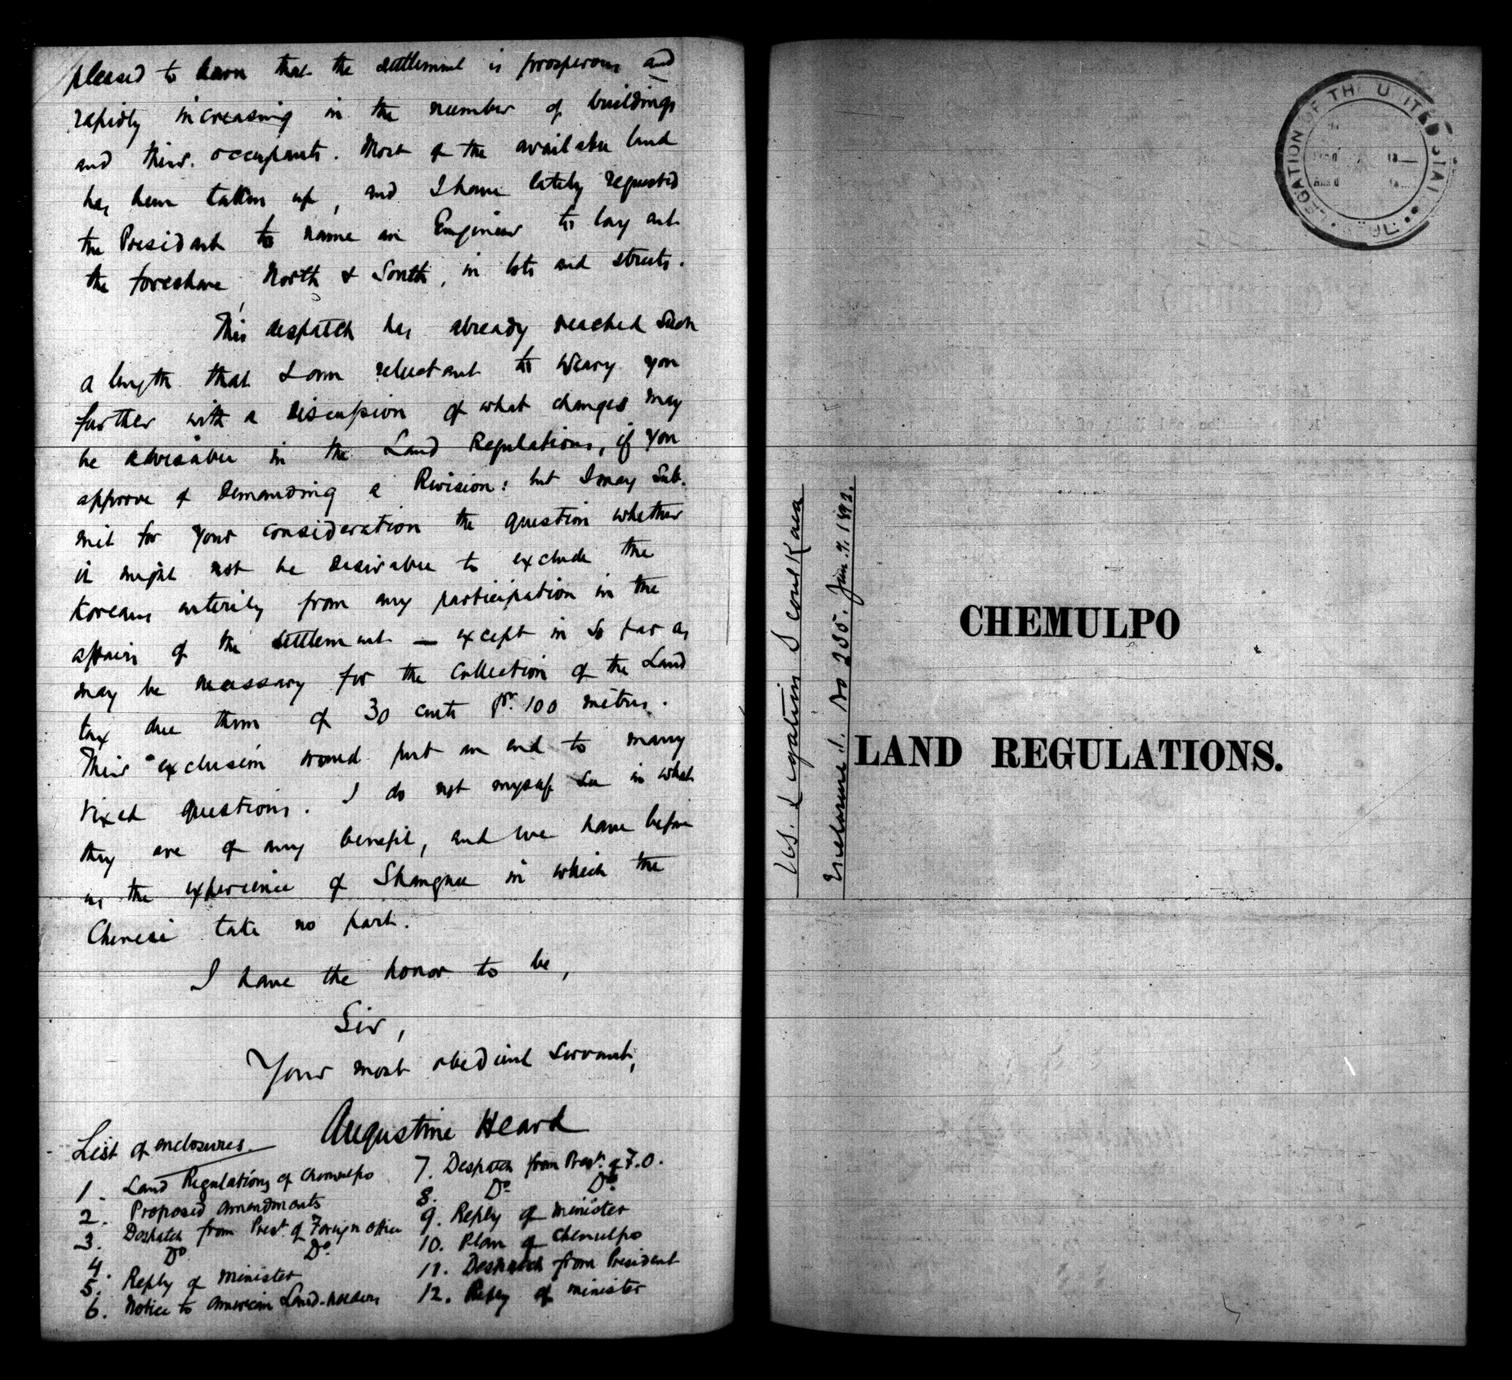 pleased to learn that the settlement is prosperous and
rapidly increasing in the number of buildings
and their occupants. Most of the available land
has been taken up, and I have lately requested
the President to name an Engineer to lay out
the foreshore, North & South, in lots and streets.
This despatch has already reached such
a length that I am reluctant to weary you
further with a discussion of what changes may
be advisable in the Land Regulations, if you
approve of demanding a Revision: but I may sub-
mit for your consideration the question whether
it might not be desirable to exclude the
Koreans entirely from any participation in the
affairs of the settlement — except in so far as
may be necessary for the collection of the Land
tax due them of 30 cents pr. 100 metres.
Their exclusion would put an end to many
vexed questions. I do not myself see in what
they are of any benefit, and we have before
us the experience of Shanghai in which the
Chinese take no part.
I have the honor to be,
Sir,
Your most obedient servant,
Augustine Heard
List of enclosures.
1. Land Regulations of Chemulpo
2. Proposed amendments
3. Despatch from Prest. of Foreign Office
4. Do Do
5. Reply of Minister
6. Notice to American Land-holders
7. Despatch from Prest. of F.O.
8. Do Do
9. Reply of Minister
10. Plan of Chemulpo
11. Despatch from President
12. Reply of minister
LEGATION OF THE UNITED STATES
U.S. Legation Seoul Korea
Enclosure 1. No 235. Jan. 7. 1892.
CHEMULPO
LAND REGULATIONS.